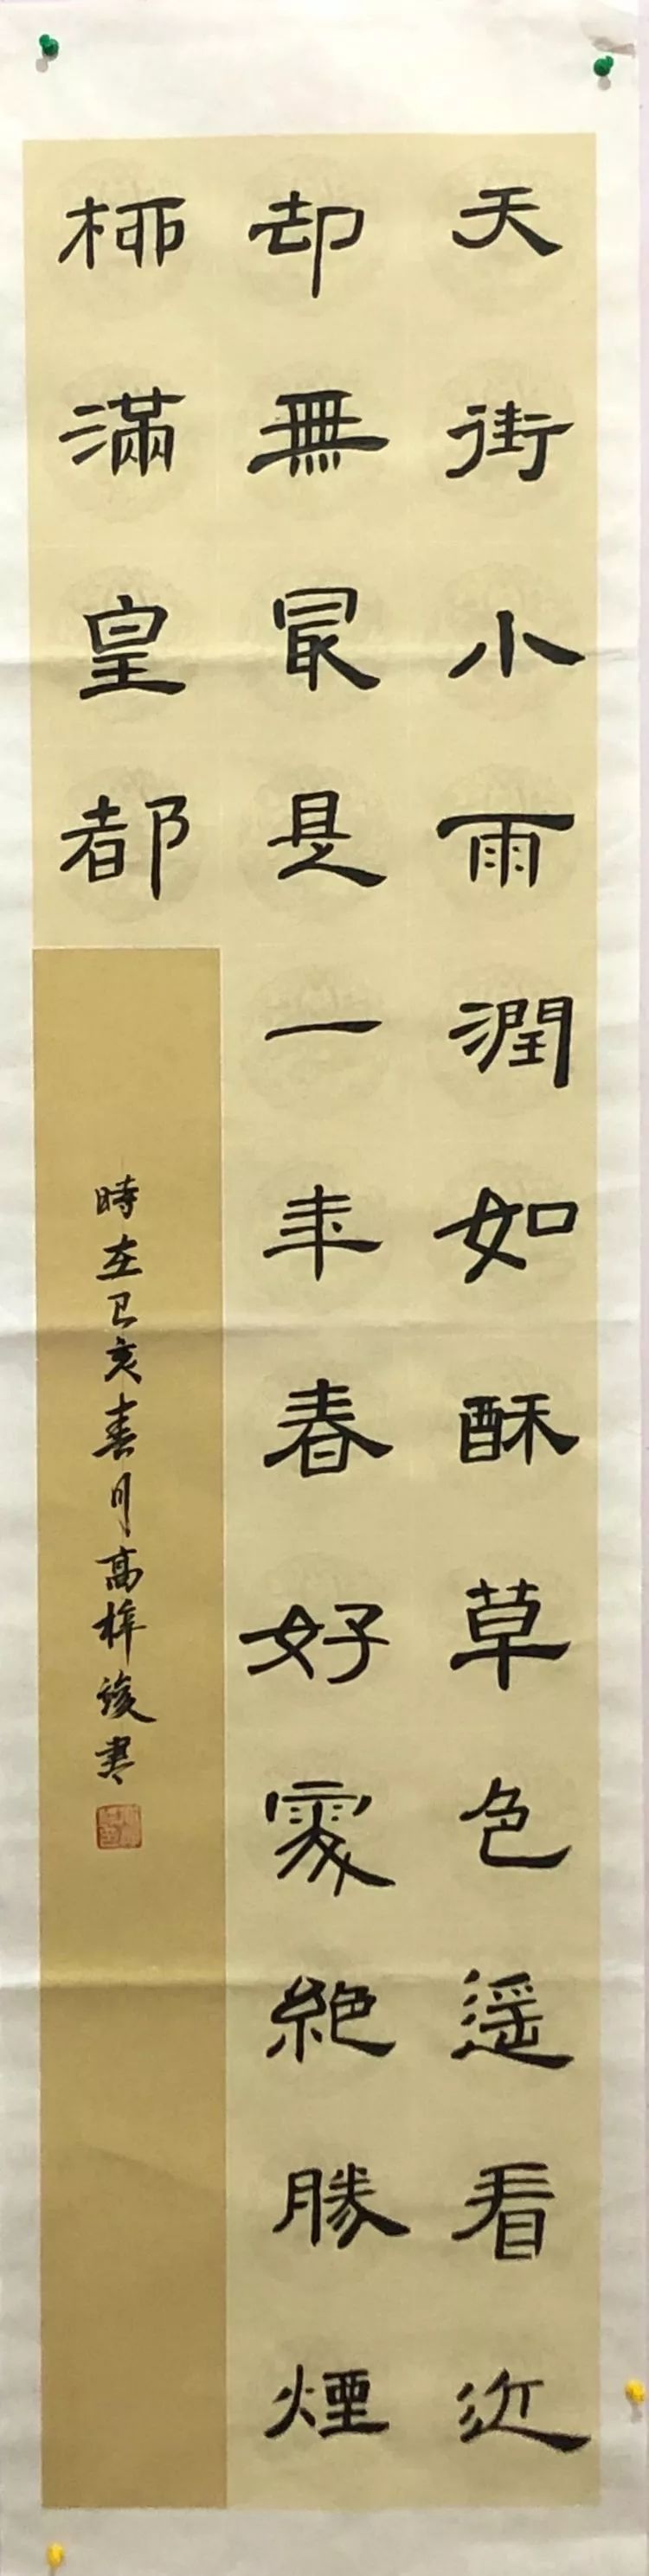 天街小雨潤如酥草色遥看近
却無冣是一年春好處絶勝煙
柳滿皇都
時在己亥春月高梓竣書